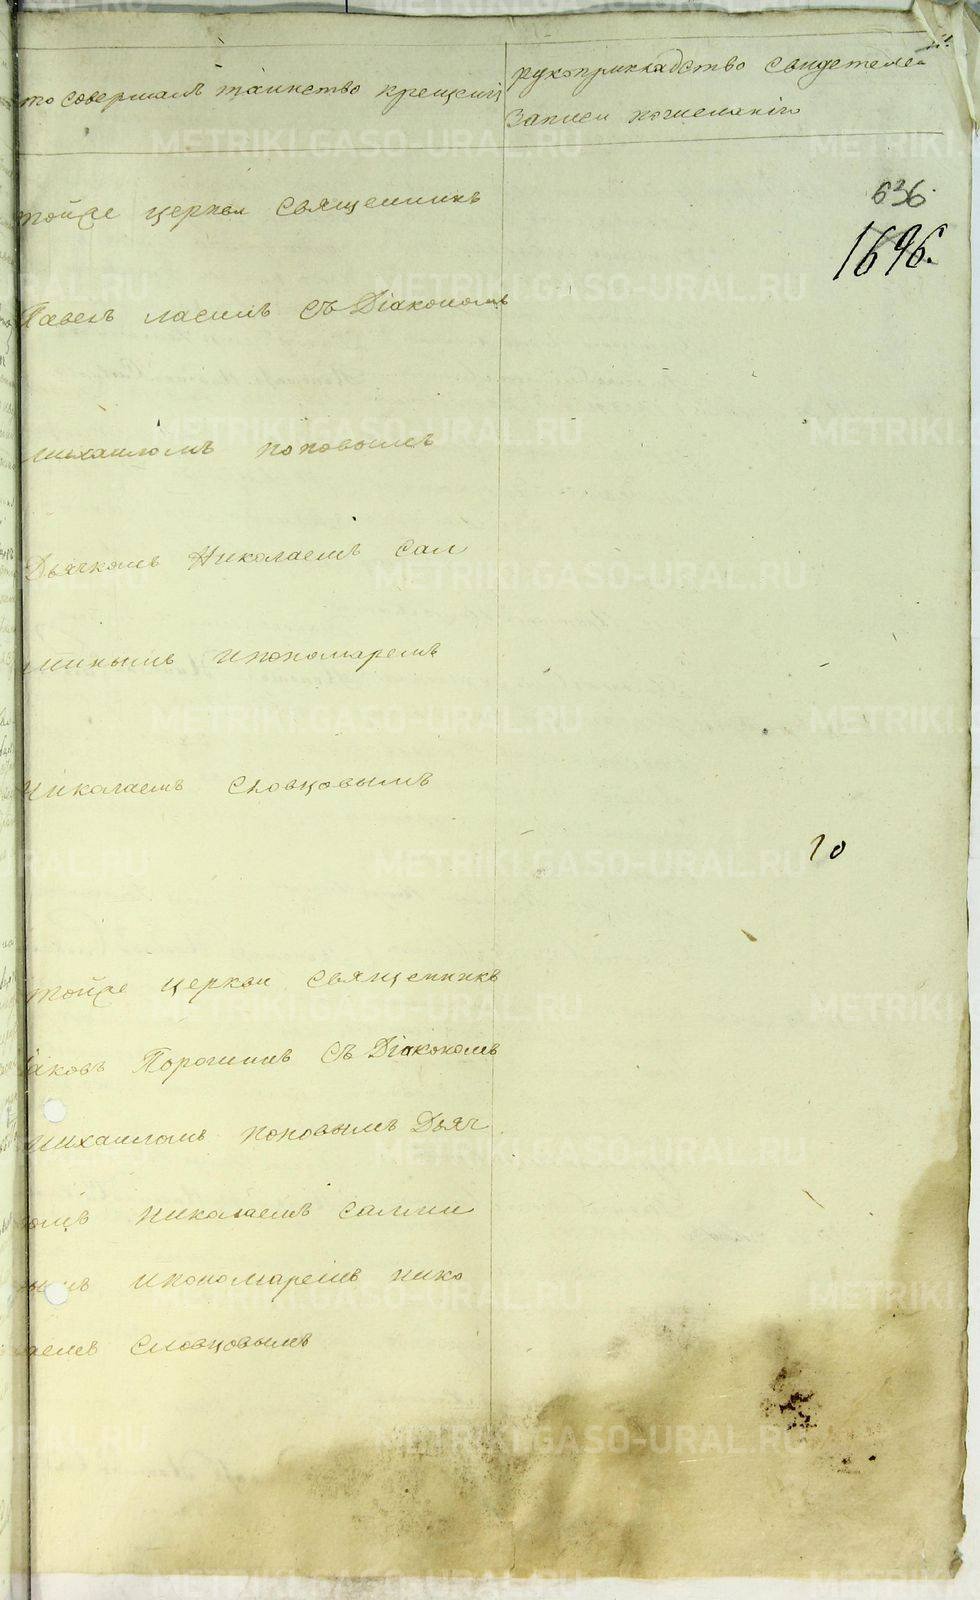 то совершалъ таинство крещенія
рукоприкладство свидетелей
записи по желанію
636.
1696.
тойже церкви священникъ
Павелъ съ Діакономъ
михаиломъ поповымъ
Дьячкомъ Николаемъ Сал
минымъ ипономаремъ
николаемъ Словцовымъ
10
тойже церкви священникъ
Іаковъ Порошинъ съ Діакономъ
михаиломъ поповымъ Дьяч
комъ николаемъ салми
нымъ ипономаремъ нико
лаемъ Словцовымъ
METRIKI.GASO-URAL.RU